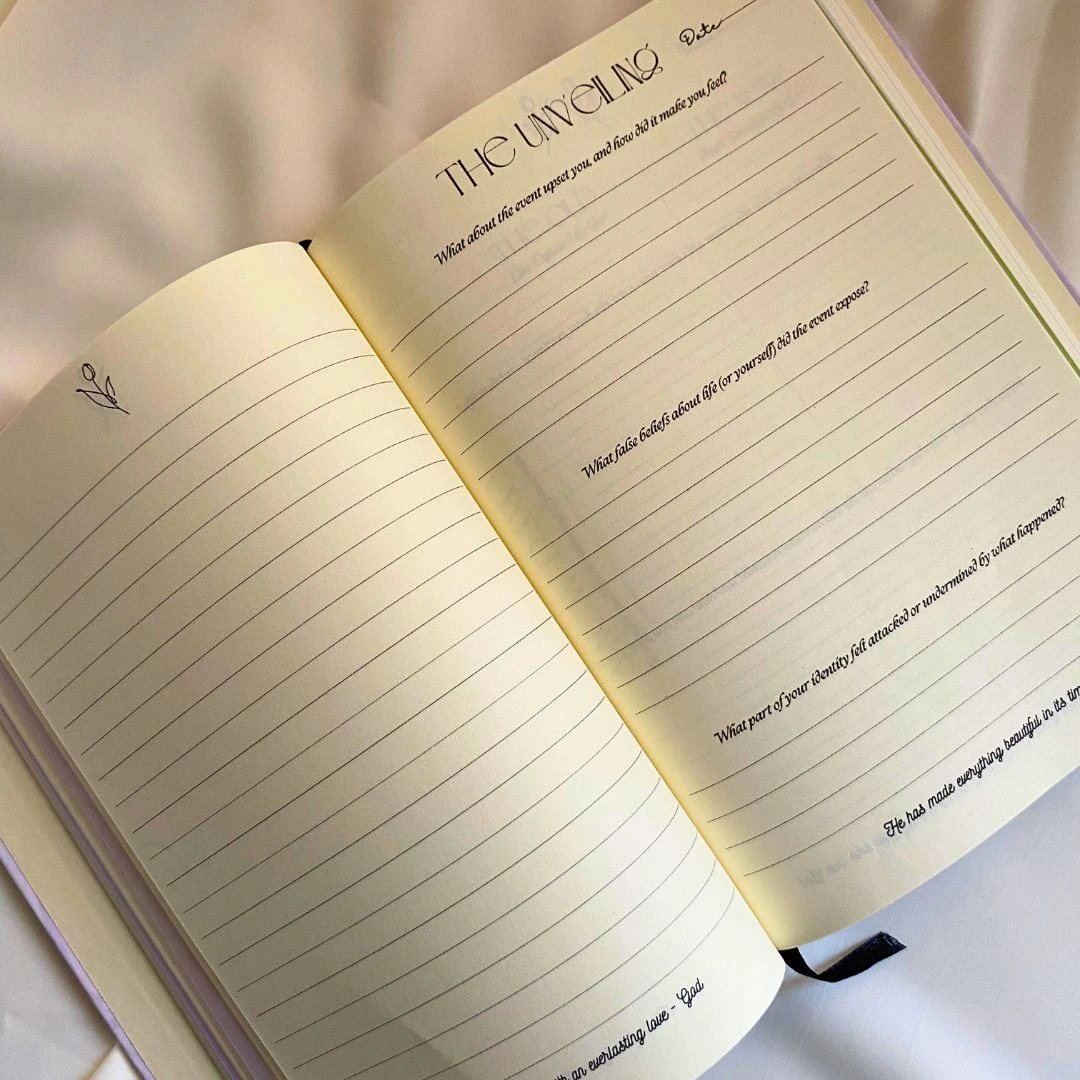 an everlasting love - God
THE UNVEILING
Date
What about the event upset you, and how did it make you feel?
What false beliefs about life (or yourself) did the event expose?
What part of your identity felt attacked or undermined by what happened?
He has made everything beautiful in its